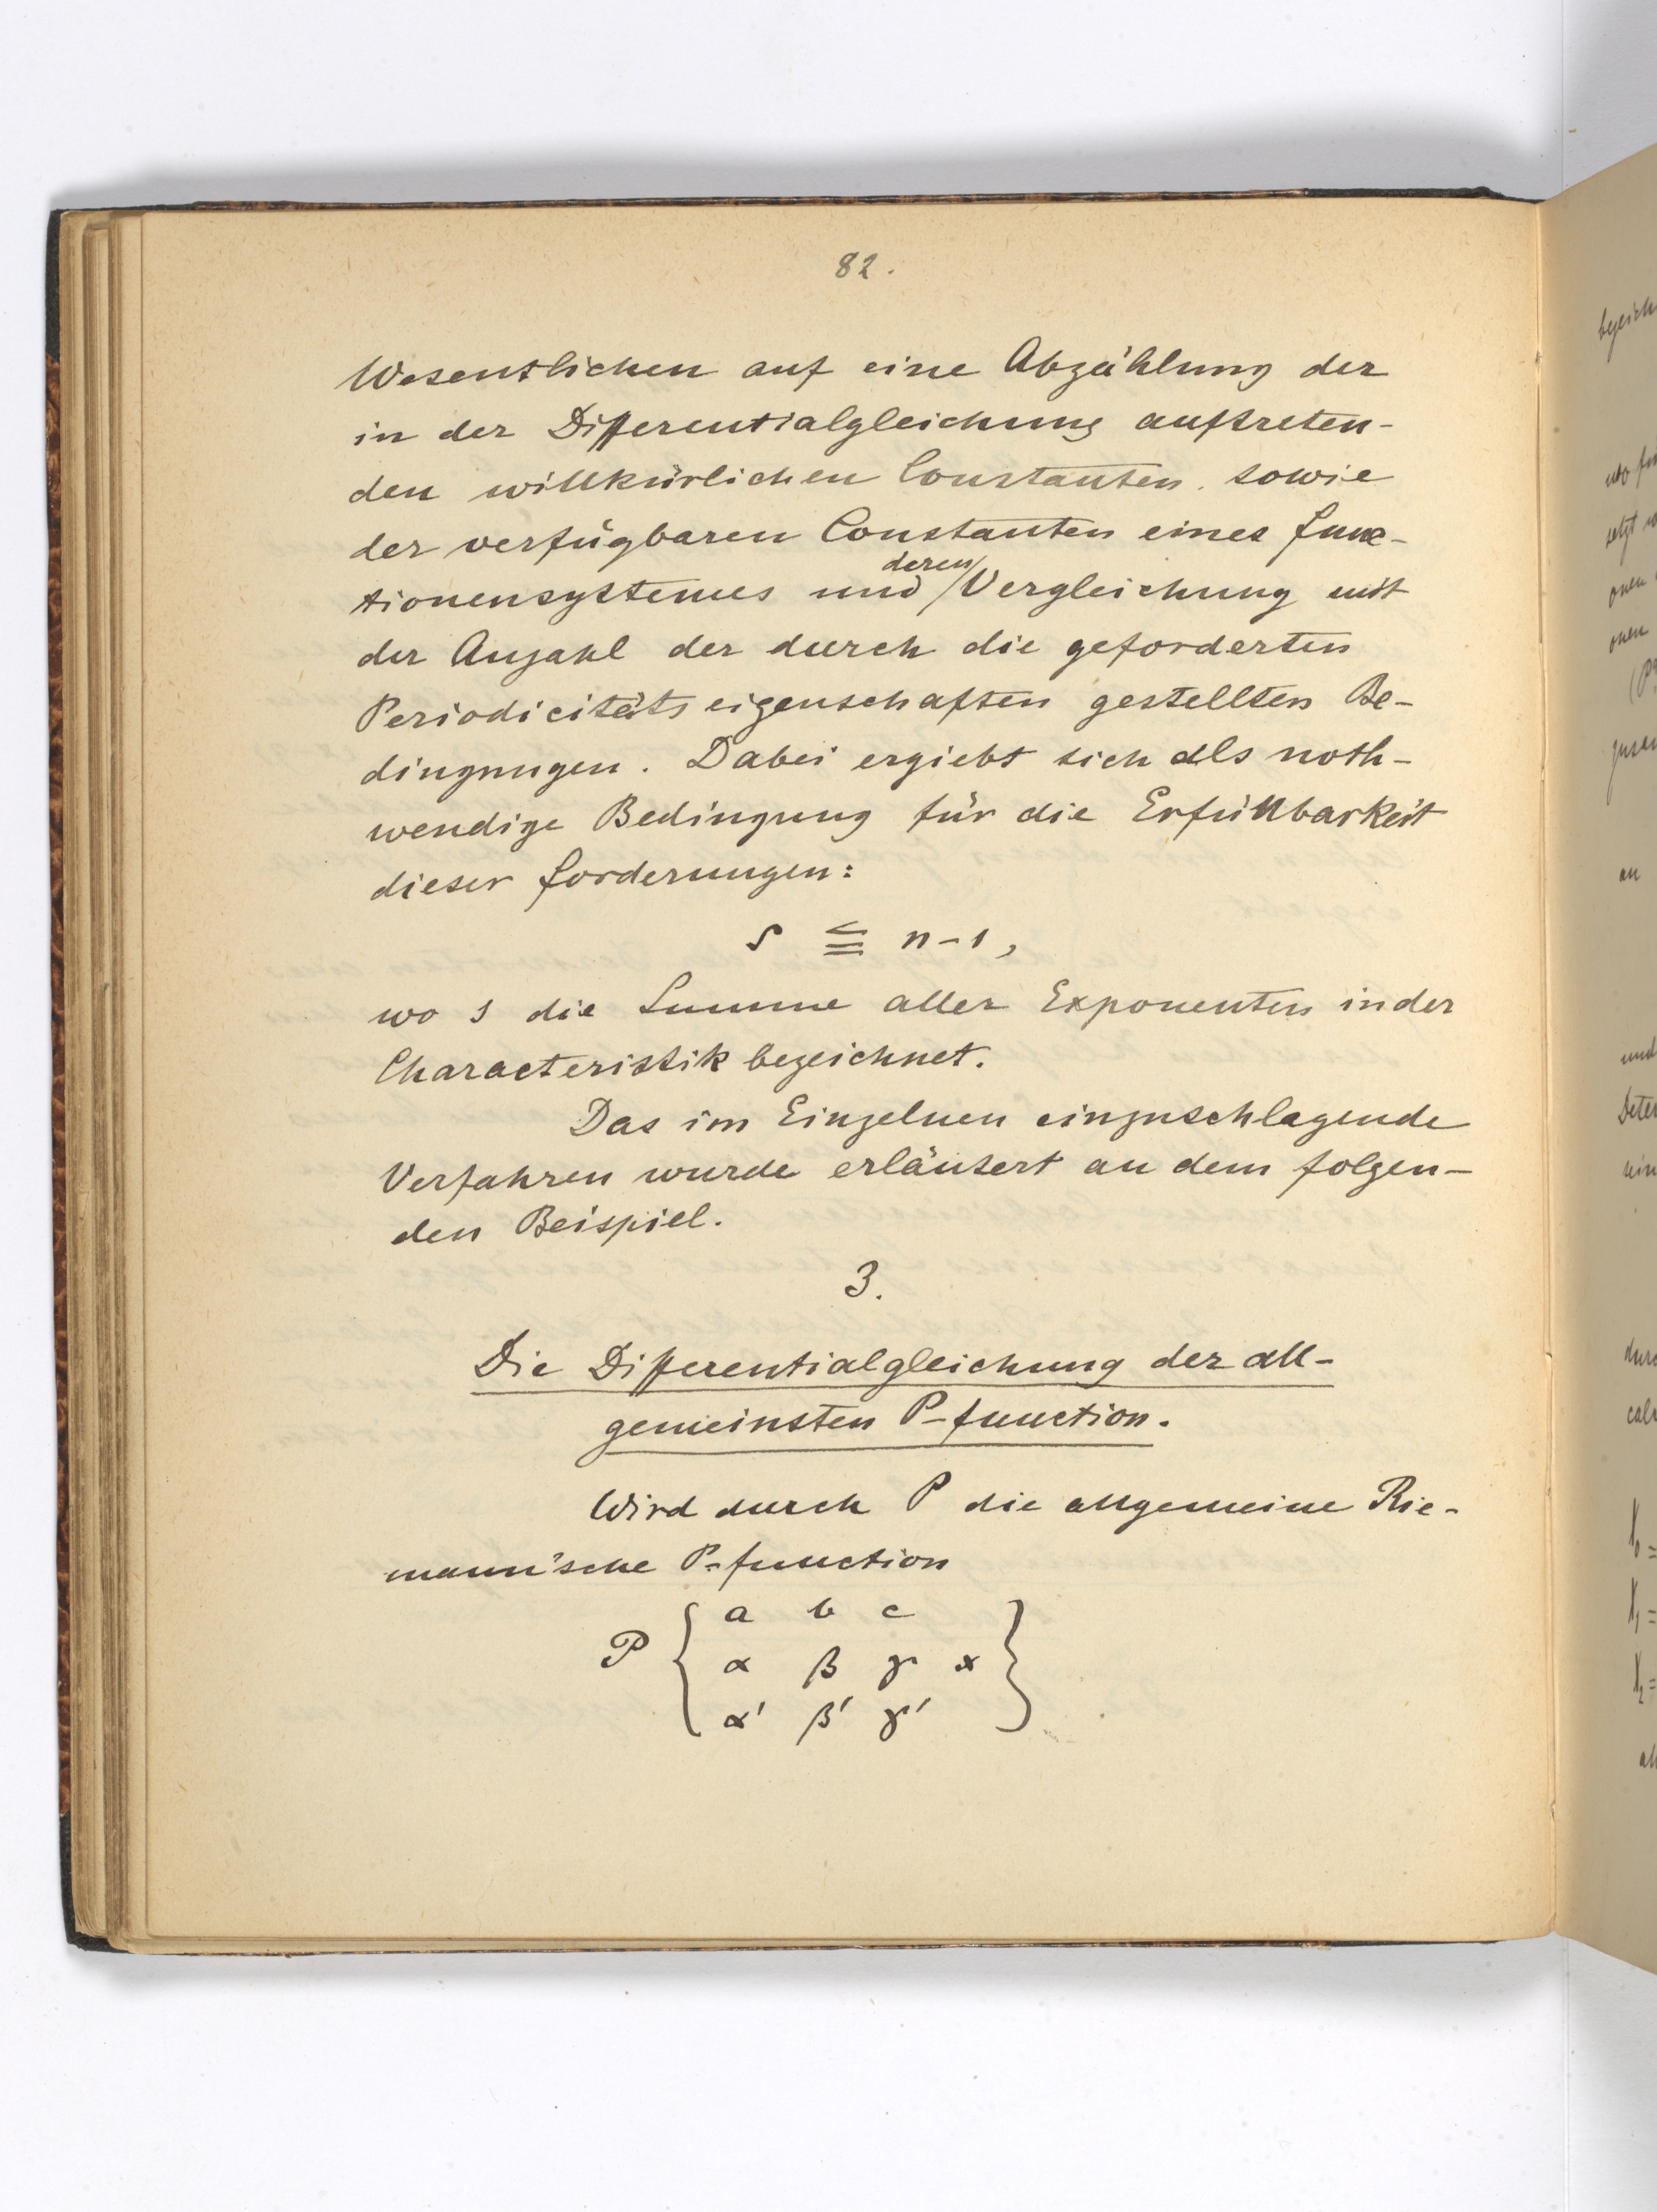 82.
Wesentlichen auf eine Abzählung der
in der Differentialgleichung auftreten-
den willkürlichen Constanten, sowie
der verfügbaren Constanten eines Func-
tionensystemes und deren Vergleichung mit
der Anzahl der durch die geforderten
Periodicitätseigenschaften gestellten Be-
dingungen. Dabei ergiebt sich als noth-
wendige Bedingung für die Erfüllbarkeit
dieser Forderungen:
s ≦ n-1,
wo s die Summe aller Exponenten in der
Characteristik bezeichnet.
Das im Einzelnen einzuschlagende
Verfahren wurde erläutert an dem folgen-
den Beispiel.
3.
Die Differentialgleichung der all-
gemeinsten P-function.
Wird durch P die allgemeine Rie-
mann'sche P-function
P { a b c
α β γ x }
α' β' γ'